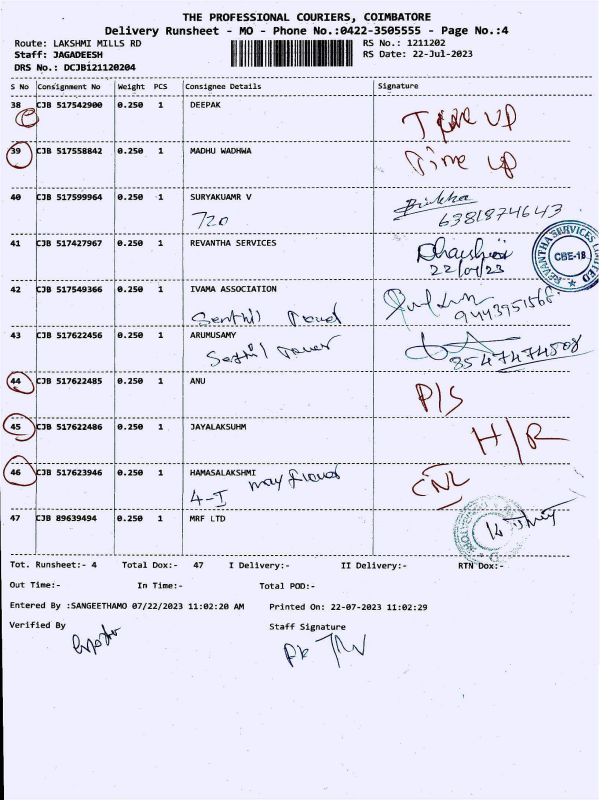 THE PROFESSIONAL COURIERS, COIMBATORE
Delivery Runsheet - MO - Phone No.:0422-3505555 - Page No.:4
Route: LAKSHMI MILLS RD RS No.: 1211202
Staff: JAGADEESH RS Date: 22-Jul-2023
DRS No.: DCJB121120204
S No Consignment No Weight PCS Consignee Details Signature
38 CJB 517542900 0.250 1 DEEPAK
Time UP
39 CJB 517558842 0.250 1 MADHU WADHWA Time up
40 CJB 517599964 0.250 1 SURYAKUAMR V
720 6381974643
41 CJB 517427967 0.250 1 REVANTHA SERVICES
22/07/23
REVANTHA SERVICES LIMITED CBE-18
42 CJB 517549366 0.250 1 IVAMA ASSOCIATION
Senthil 9443951568
43 CJB 517622456 0.250 1 ARUMUSAMY
8547474508
44 CJB 517622485 0.250 1 ANU P/S
45 CJB 517622486 0.250 1 JAYALAKSUHM H/R
46 CJB 517623946 0.250 1 HAMASALAKSHMI CNL
4-I may flower
47 CJB 89639494 0.250 1 MRF LTD
Tot. Runsheet:- 4 Total Dox:- 47 I Delivery:- II Delivery:- RTN Dox:-
Out Time:- In Time:- Total POD:-
Entered By :SANGEETHAMO 07/22/2023 11:02:20 AM Printed On: 22-07-2023 11:02:29
Verified By Staff Signature